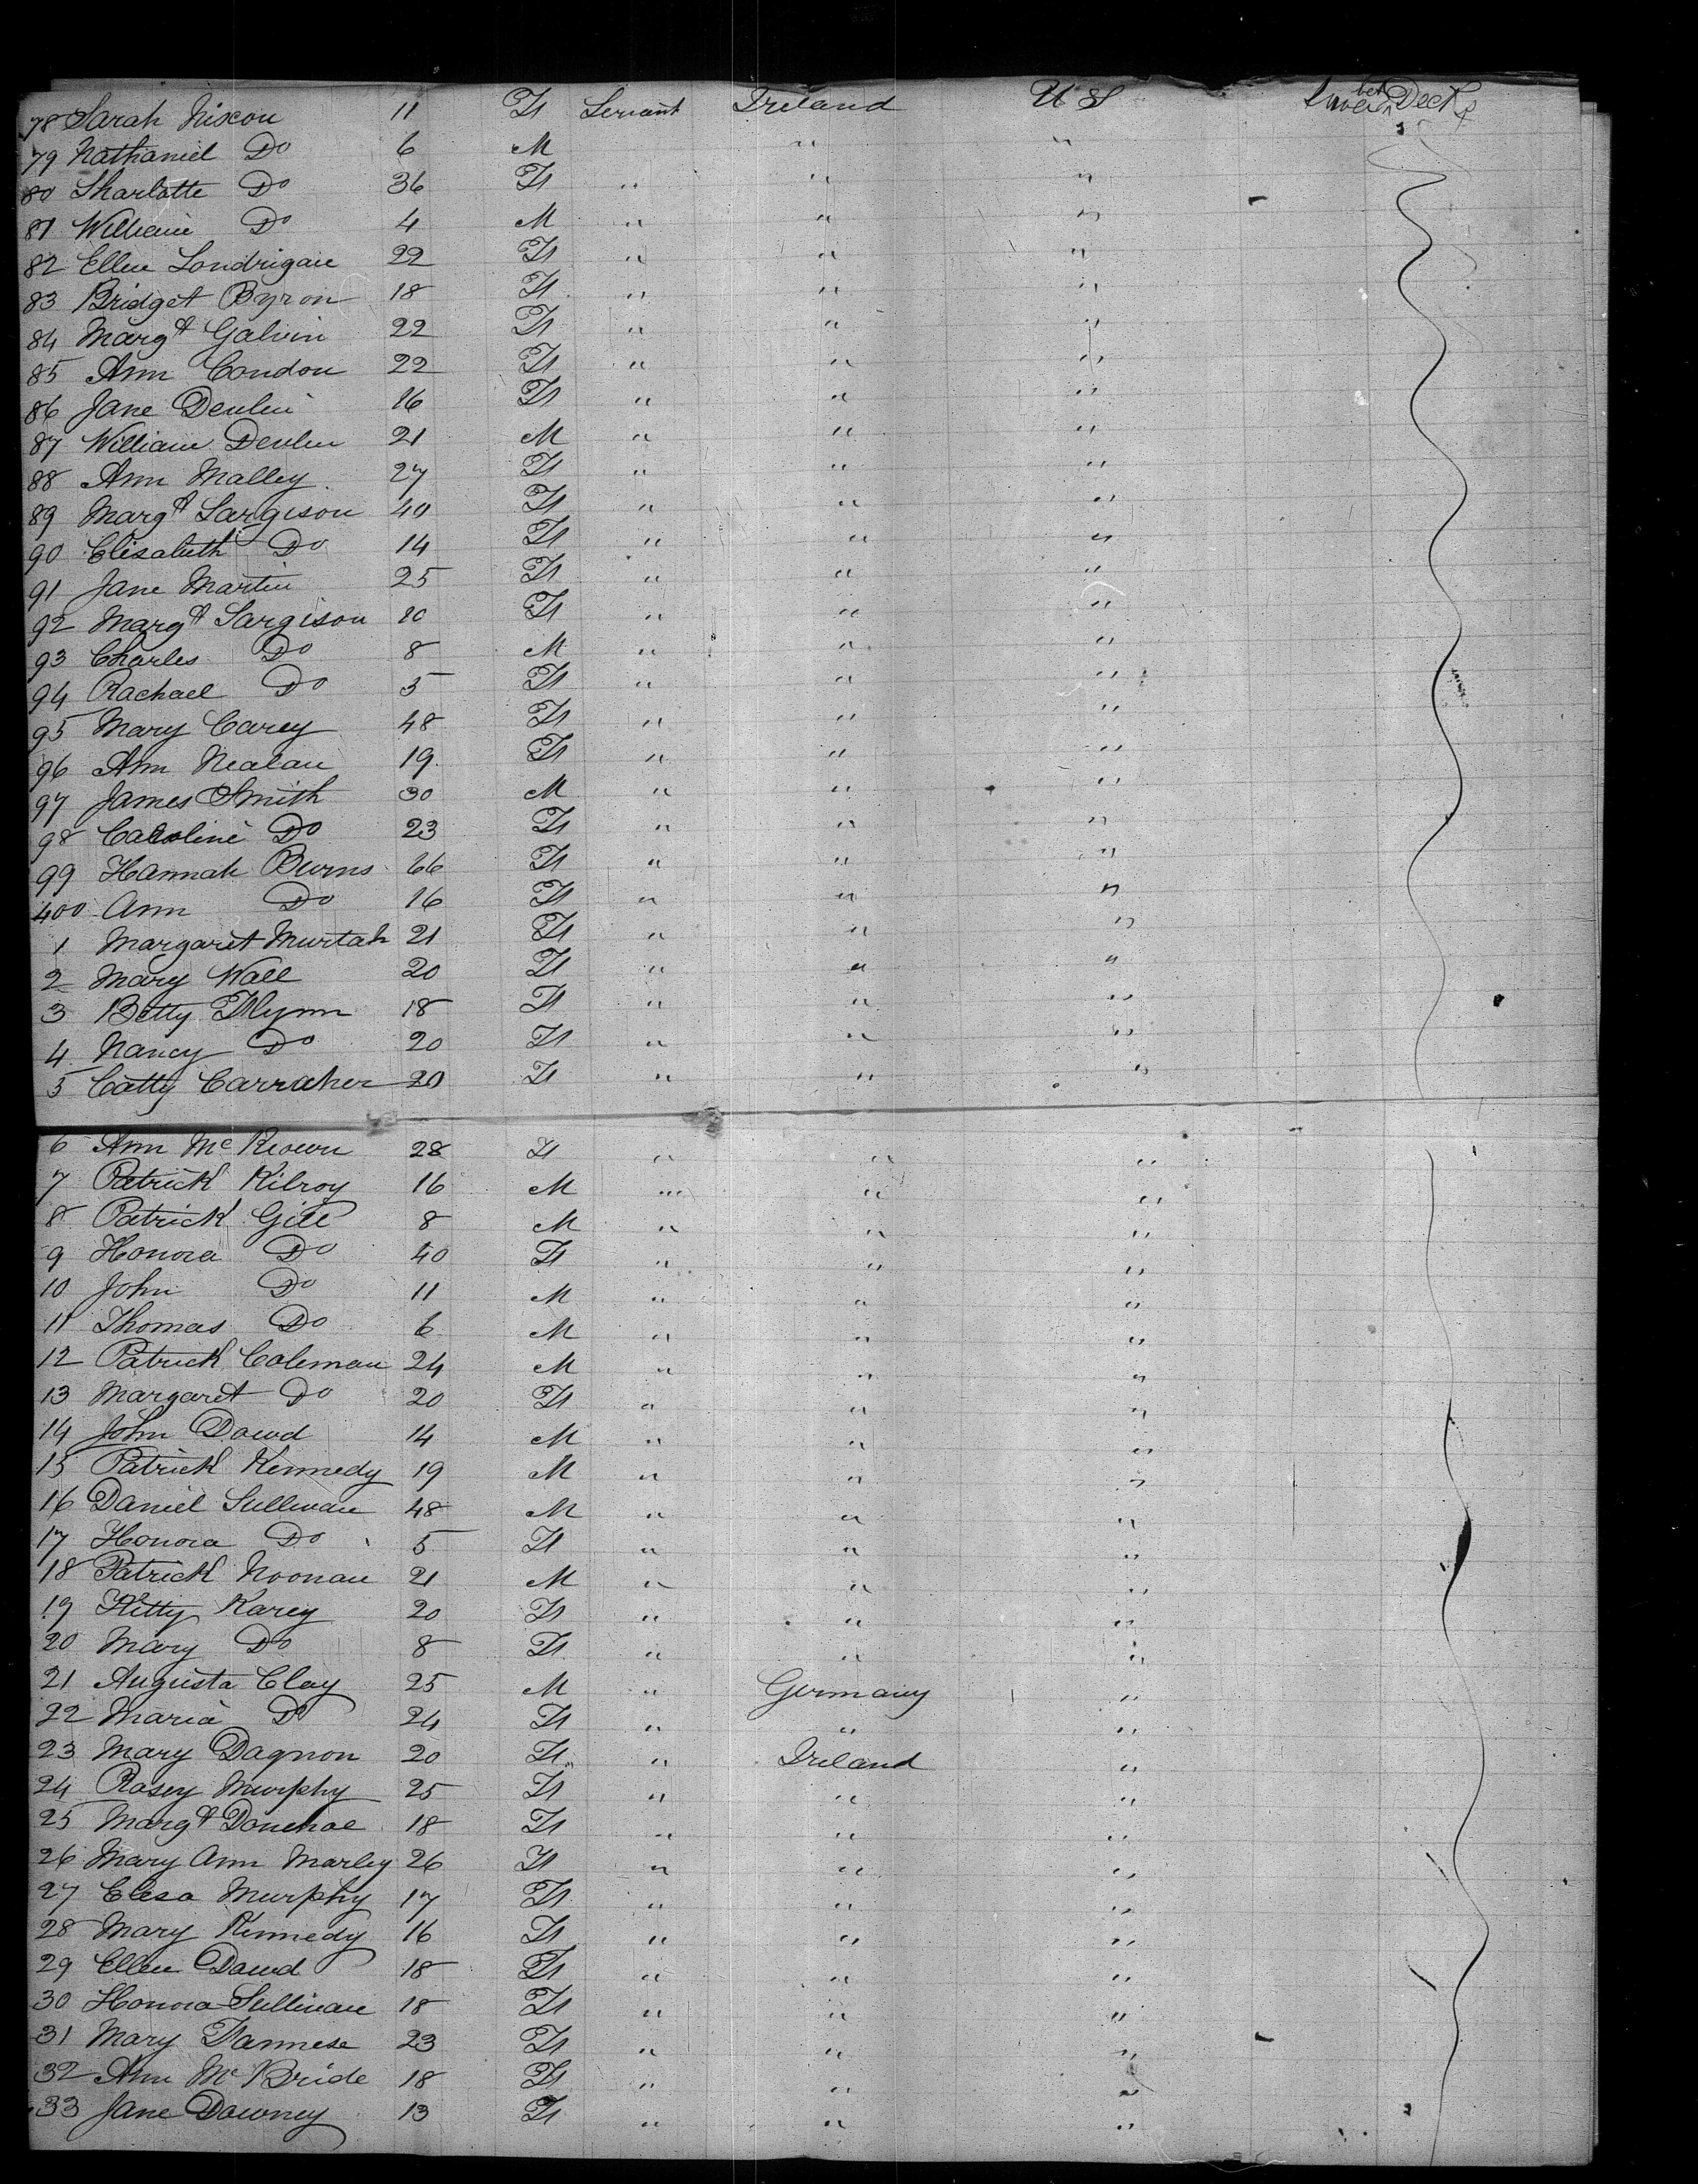 78 Sarah Niscon 11 F Servant Ireland U S Lower bet Decks
79 Nathaniel Do 6 M " "
80 Sharlotte Do 36 F " " "
81 William Do 4 M " " "
82 Ellen Londrigan 22 F " " "
83 Bridget Byron 18 F " " "
84 Margt Galvin 22 F " " "
85 Ann Condon 22 F " " "
86 Jane Devlin 16 F " " "
87 William Devlin 21 M " " "
88 Ann Malley 27 F " " "
89 Margt Sargison 40 F " " "
90 Elisabeth Do 14 F " " "
91 Jane Martin 25 F " " "
92 Margt Sargison 10 F " " "
93 Charles Do 8 M " " "
94 Rachael Do 5 F " " "
95 Mary Carey 48 F " " "
96 Ann Nealan 19 F " " "
97 James Smith 30 M " " "
98 Caroline Do 23 F " " "
99 Hannah Burns 66 F " " "
400 Ann Do 16 F " " "
1 Margaret Murtah 21 F " " "
2 Mary Wall 20 F " " "
3 Betty Flynn 18 F " " "
4 Nancy Do 20 F " " "
5 Catty Carraher 20 F " " "
6 Ann McKeown 28 F " " "
7 Patrick Kilroy 16 M " " "
8 Patrick Gill 8 M " " "
9 Honora Do 40 F " " "
10 John Do 11 M " " "
11 Thomas Do 6 M " " "
12 Patrick Coleman 24 M " " "
13 Margaret Do 20 F " " "
14 John Dowd 14 M " " "
15 Patrick Kennedy 19 M " " "
16 Daniel Sullivan 48 M " " "
17 Honora Do 5 F " " "
18 Patrick Noonan 21 M " " "
19 Kitty Karey 20 F " " "
20 Mary Do 8 F " " "
21 Augusta Clay 25 M " Germany "
22 Maria Do 24 F " " "
23 Mary Dagnon 20 F " Ireland "
24 Rosey Murphy 25 F " " "
25 Margt Donehoe 18 F " " "
26 Mary Ann Marley 26 F " " "
27 Elesa Murphy 17 F " " "
28 Mary Kennedy 16 F " " "
29 Ellen Dowd 18 F " " "
30 Honora Sullivan 18 F " " "
31 Mary Fannese 23 F " " "
32 Ann McBride 18 F " " "
33 Jane Downey 13 F " " "